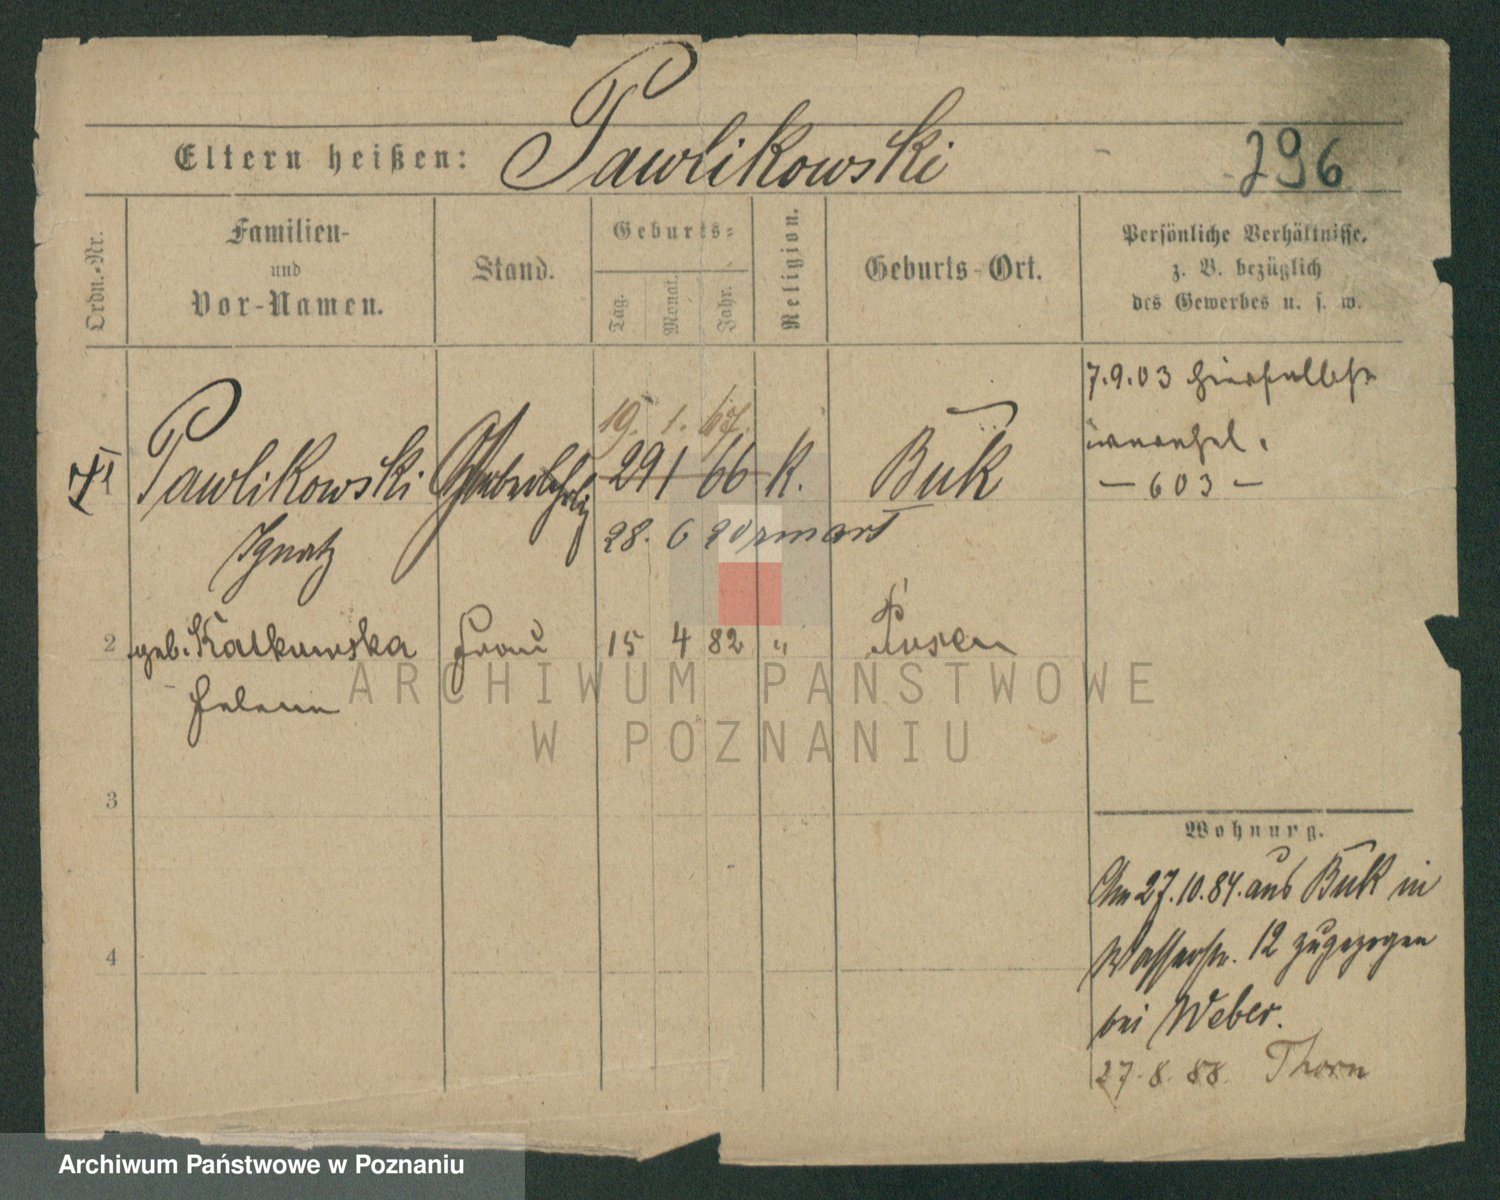 Pawlikowski
Eltern heißen:
296
Ordn.-Nr.
Familien-
und
Vor-Namen.
Stand.
Geburts-
Tag.
Monat.
Jahr.
Religion.
Geburts-Ort.
Persönliche Verhältnisse,
z. B. bezüglich
des Gewerbes u. s. w.
7.9.03
— 603 —
19. 1. 67.
Pawlikowski
29 1 66 K. Buk
Ignatz
28. 6 20
2 geb. Ratkowska Frau 15 4 82 " Posen
Helene
3
4
Wohnung.
Am 27.10.84. aus Buk in
Wasserstr. 12 zugezogen
bei Weber.
27. 8. 88. Thorn
ARCHIWUM PAŃSTWOWE
W POZNANIU
Archiwum Państwowe w Poznaniu